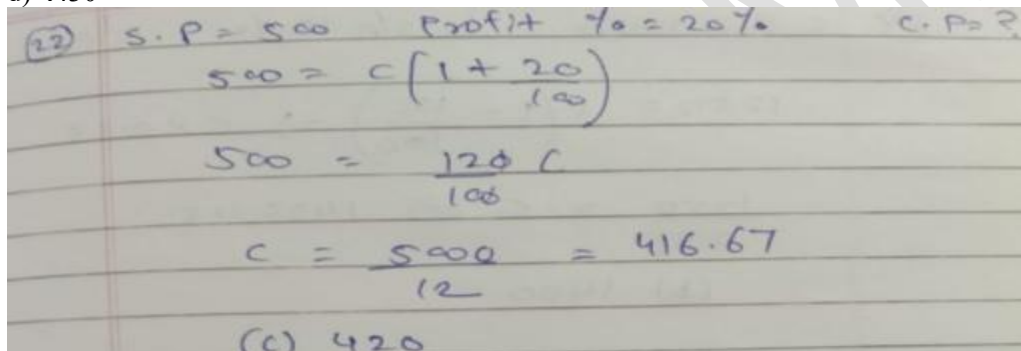 (22) S.P = 500 Profit % = 20% C.P = ?
500 = C(1 + 20/100)
500 = 120/100 C
C = 5000/12 = 416.67
(C) 420